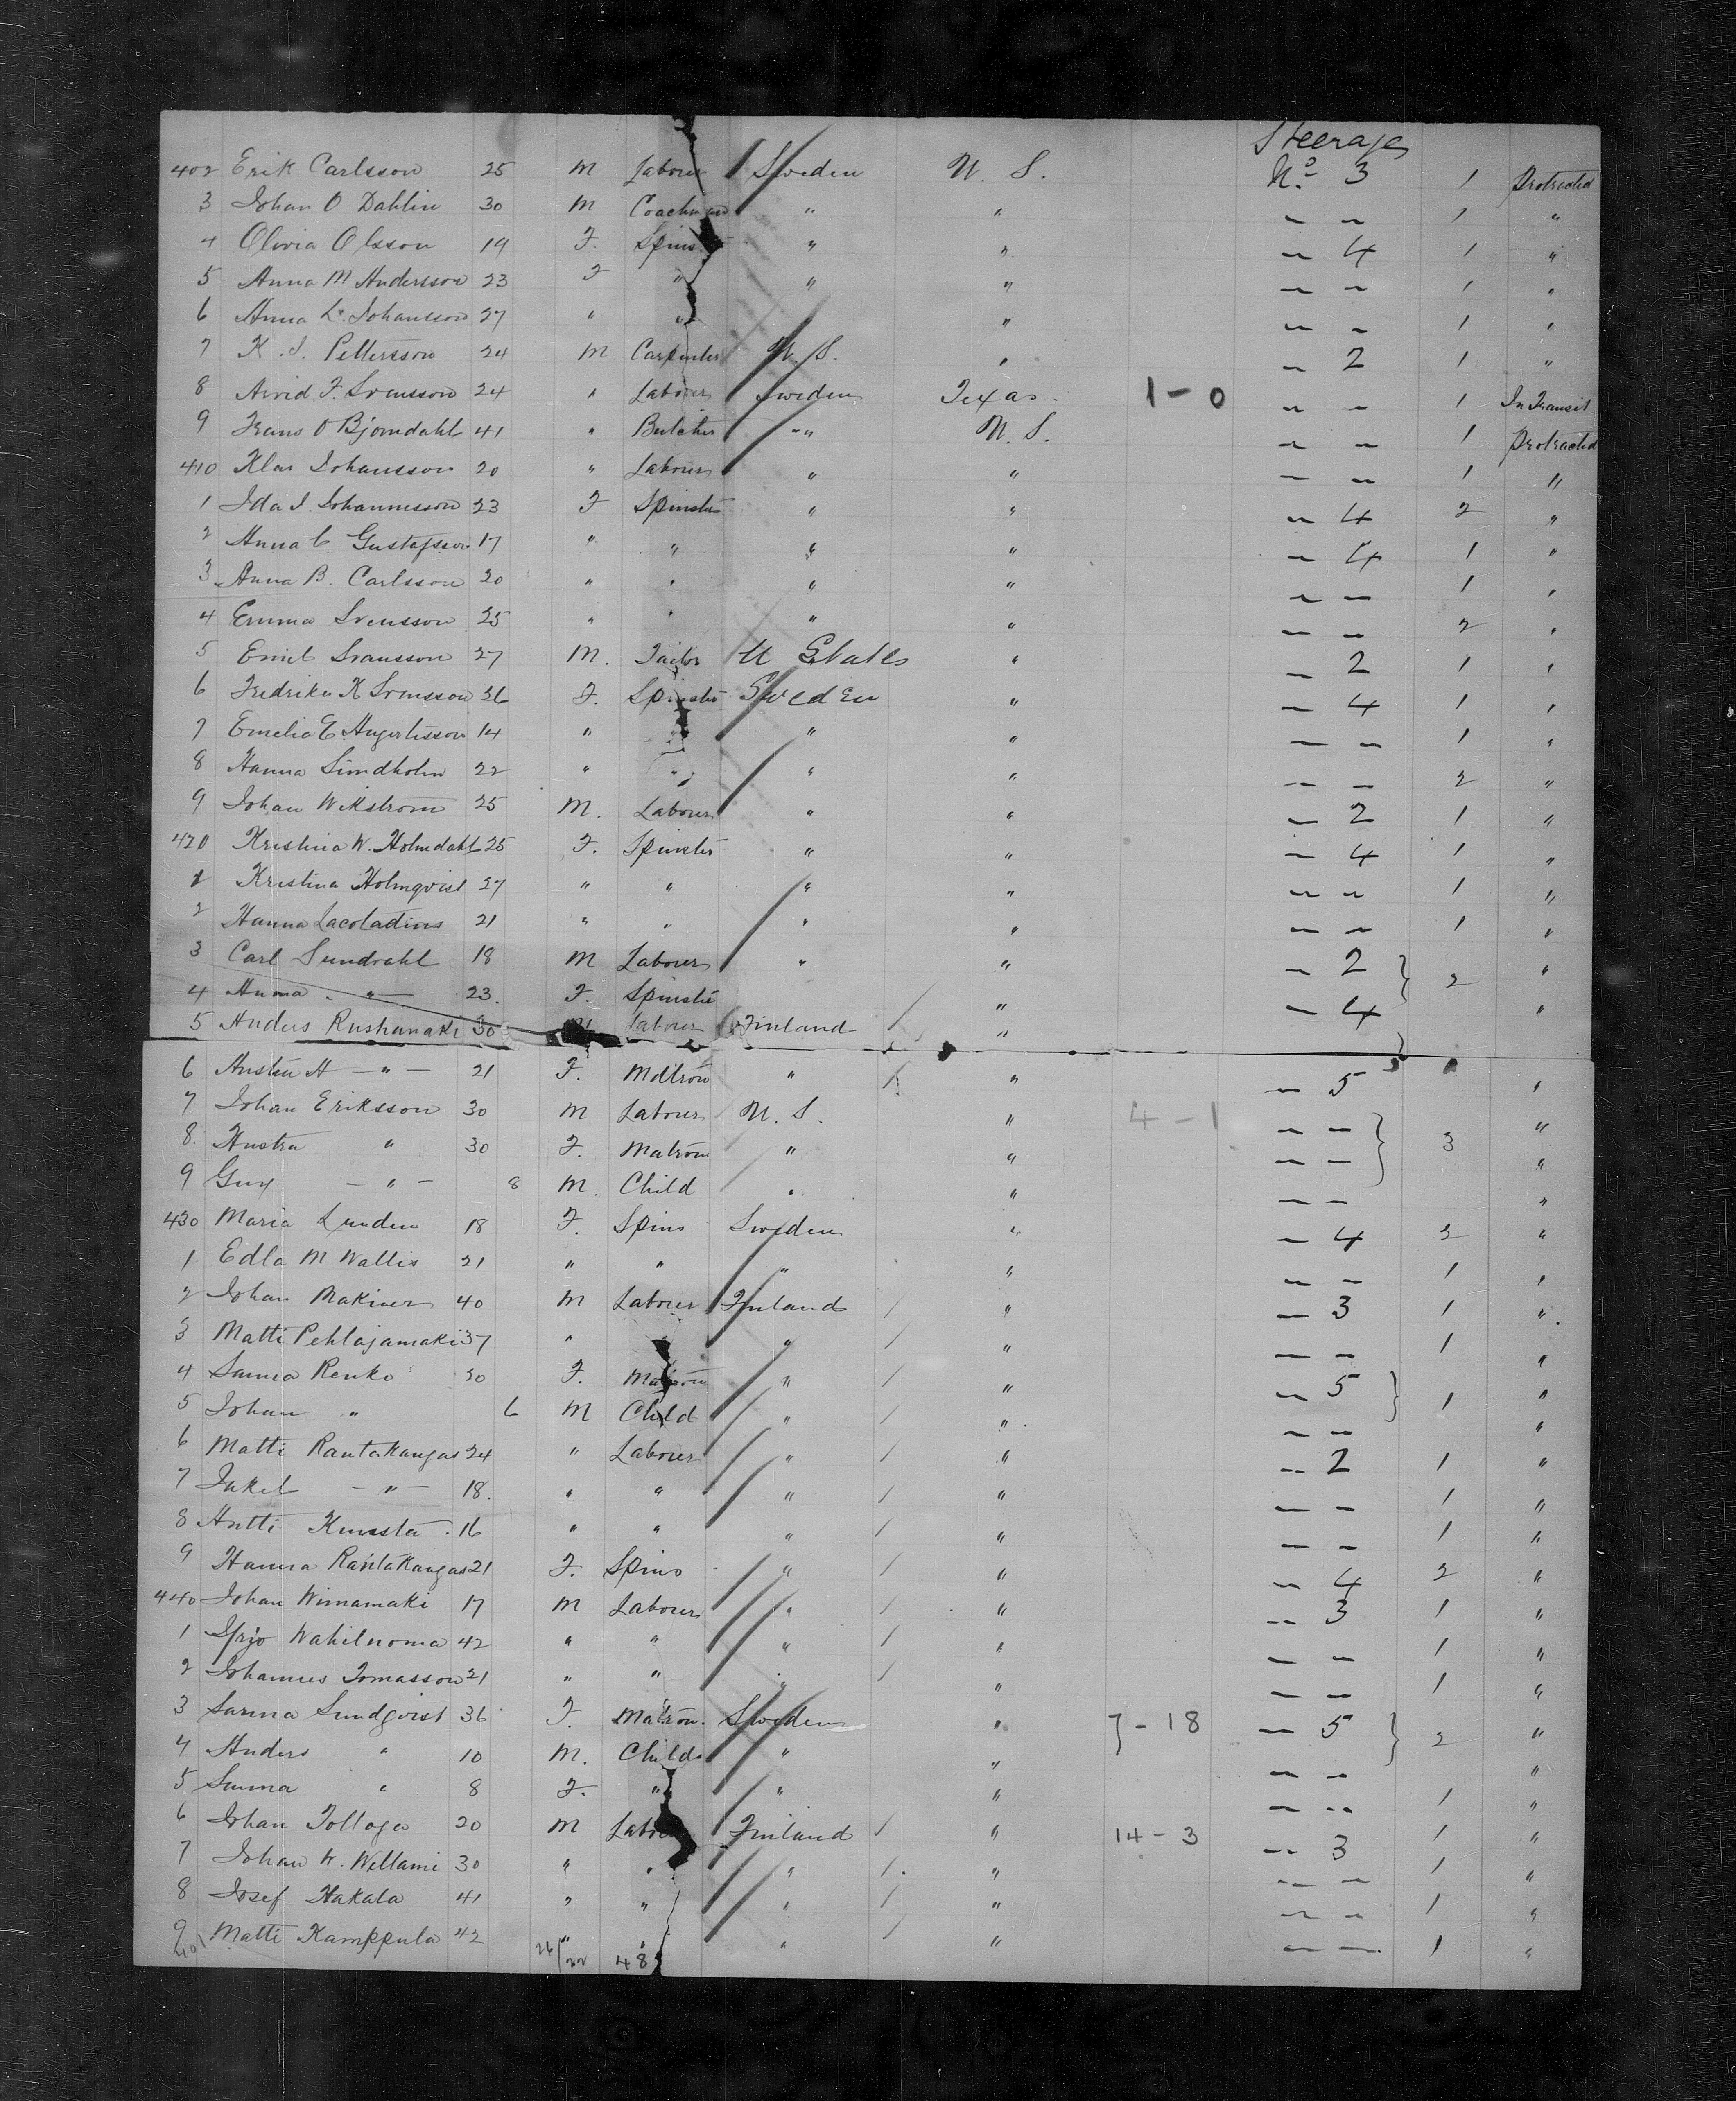 Steerage
402 Erik Carlsson 25 M Labourer Sweden U. S. No 3 1 Protracted
3 Johan O Dahlin 30 M Coachman " " — — 1 "
4 Olivia Olsson 19 F. Spins " " — 4 1 "
5 Anna M Andersson 23 F " " " — — 1 "
6 Anna L. Johansson 27 " " " — — 1 "
7 K. J. Pettersson 24 M Carpenter U. S. " — 2 1 "
8 Arvid F. Svensson 24 " Labourer Sweden Texas. 1-0 — — 1 In Transit
9 Frans O Bjorndahl 41 " Butcher " " U. S. — — 1 Protracted
410 Klas Johansson 20 " Labourer " " — — 1 "
1 Ida J. Johannesson 23 F Spinster " " — 4 2 "
2 Anna C Gustafsson 17 " " " " — 4 1 "
3 Anna B. Carlsson 20 " " " " — — 1 "
4 Emma Svensson 25 " " " " — — 2 "
5 Emil Svansson 27 M. Tailor U States " — 2 1 "
6 Fredrika K Svensson 36 F. Spinster Sweden " — 4 1 "
7 Emelia E 14 " " " " — — 1 "
8 Hanna 22 " " " " — — 2 "
9 Johan Wikstrom 25 M. Labourer " " — 2 1 "
420 Kristina W. Holmdahl 25 F. Spinster " " — 4 1 "
1 Kristina Holmqvist 27 " " " " — — 1 "
2 Hanna 21 " " " " — — 1 "
3 Carl Sundvahl 18 M Labourer " " — 2 } 2 "
4 Anna — " — 23. F. Spinster " — 4 "
5 Anders Rushanaki 30 M Labourer Finland / " }
6 H — " — 21 F. Matron " / " — 5 "
7 Johan Eriksson 30 M Labourer U. S. " 4-1 — — } 3 "
8. Hustra " 30 F. Matron " " — — "
9 Guy — " — 8 M. Child " " — — "
430 Maria Lunden 18 F. Spins Sweden " — 4 2 "
1 Edla M Wallis 21 " " " " — — 1 "
2 Johan Makinen 40 M Labourer Finland / " — 3 1 "
3 Matti Pehlajamaki 37 " " / " — — 1 "
4 Sanna Renko 30 F. Matron " / " — 5 } 1 "
5 Johan " 6 M Child " / " — — "
6 Matti Rantakangas 24 " Labourer " / " — 2 1 "
7 Jakel — " — 18. " " " / " — — 1 "
8 Antti 16 " " " / " — — 1 "
9 Hanna Rantakangas 21 F. Spins " / " — 4 2 "
440 Johan Wimamaki 17 M Labourer " / " — 3 1 "
1 Yrjo 42 " " " / " — — 1 "
2 Johannes Tomasson 21 " " " / " — — 1 "
3 Sanna Sundqvist 36 F. Matron. Sweden " 7-18 — 5 } 2 "
4 Anders " 10 M. Child " " — — "
5 Sanna " 8 F. " " " — — 1 "
6 Johan Tollaga 20 M Labourer Finland / " 14-3 — 3 1 "
7 Johan W. 30 " " " / " — — 1 "
8 Josef Hakala 41 " " " / " — — 1 "
9 Matti Kamppula 42 " " " / " — — 1 "
401 26/22 48